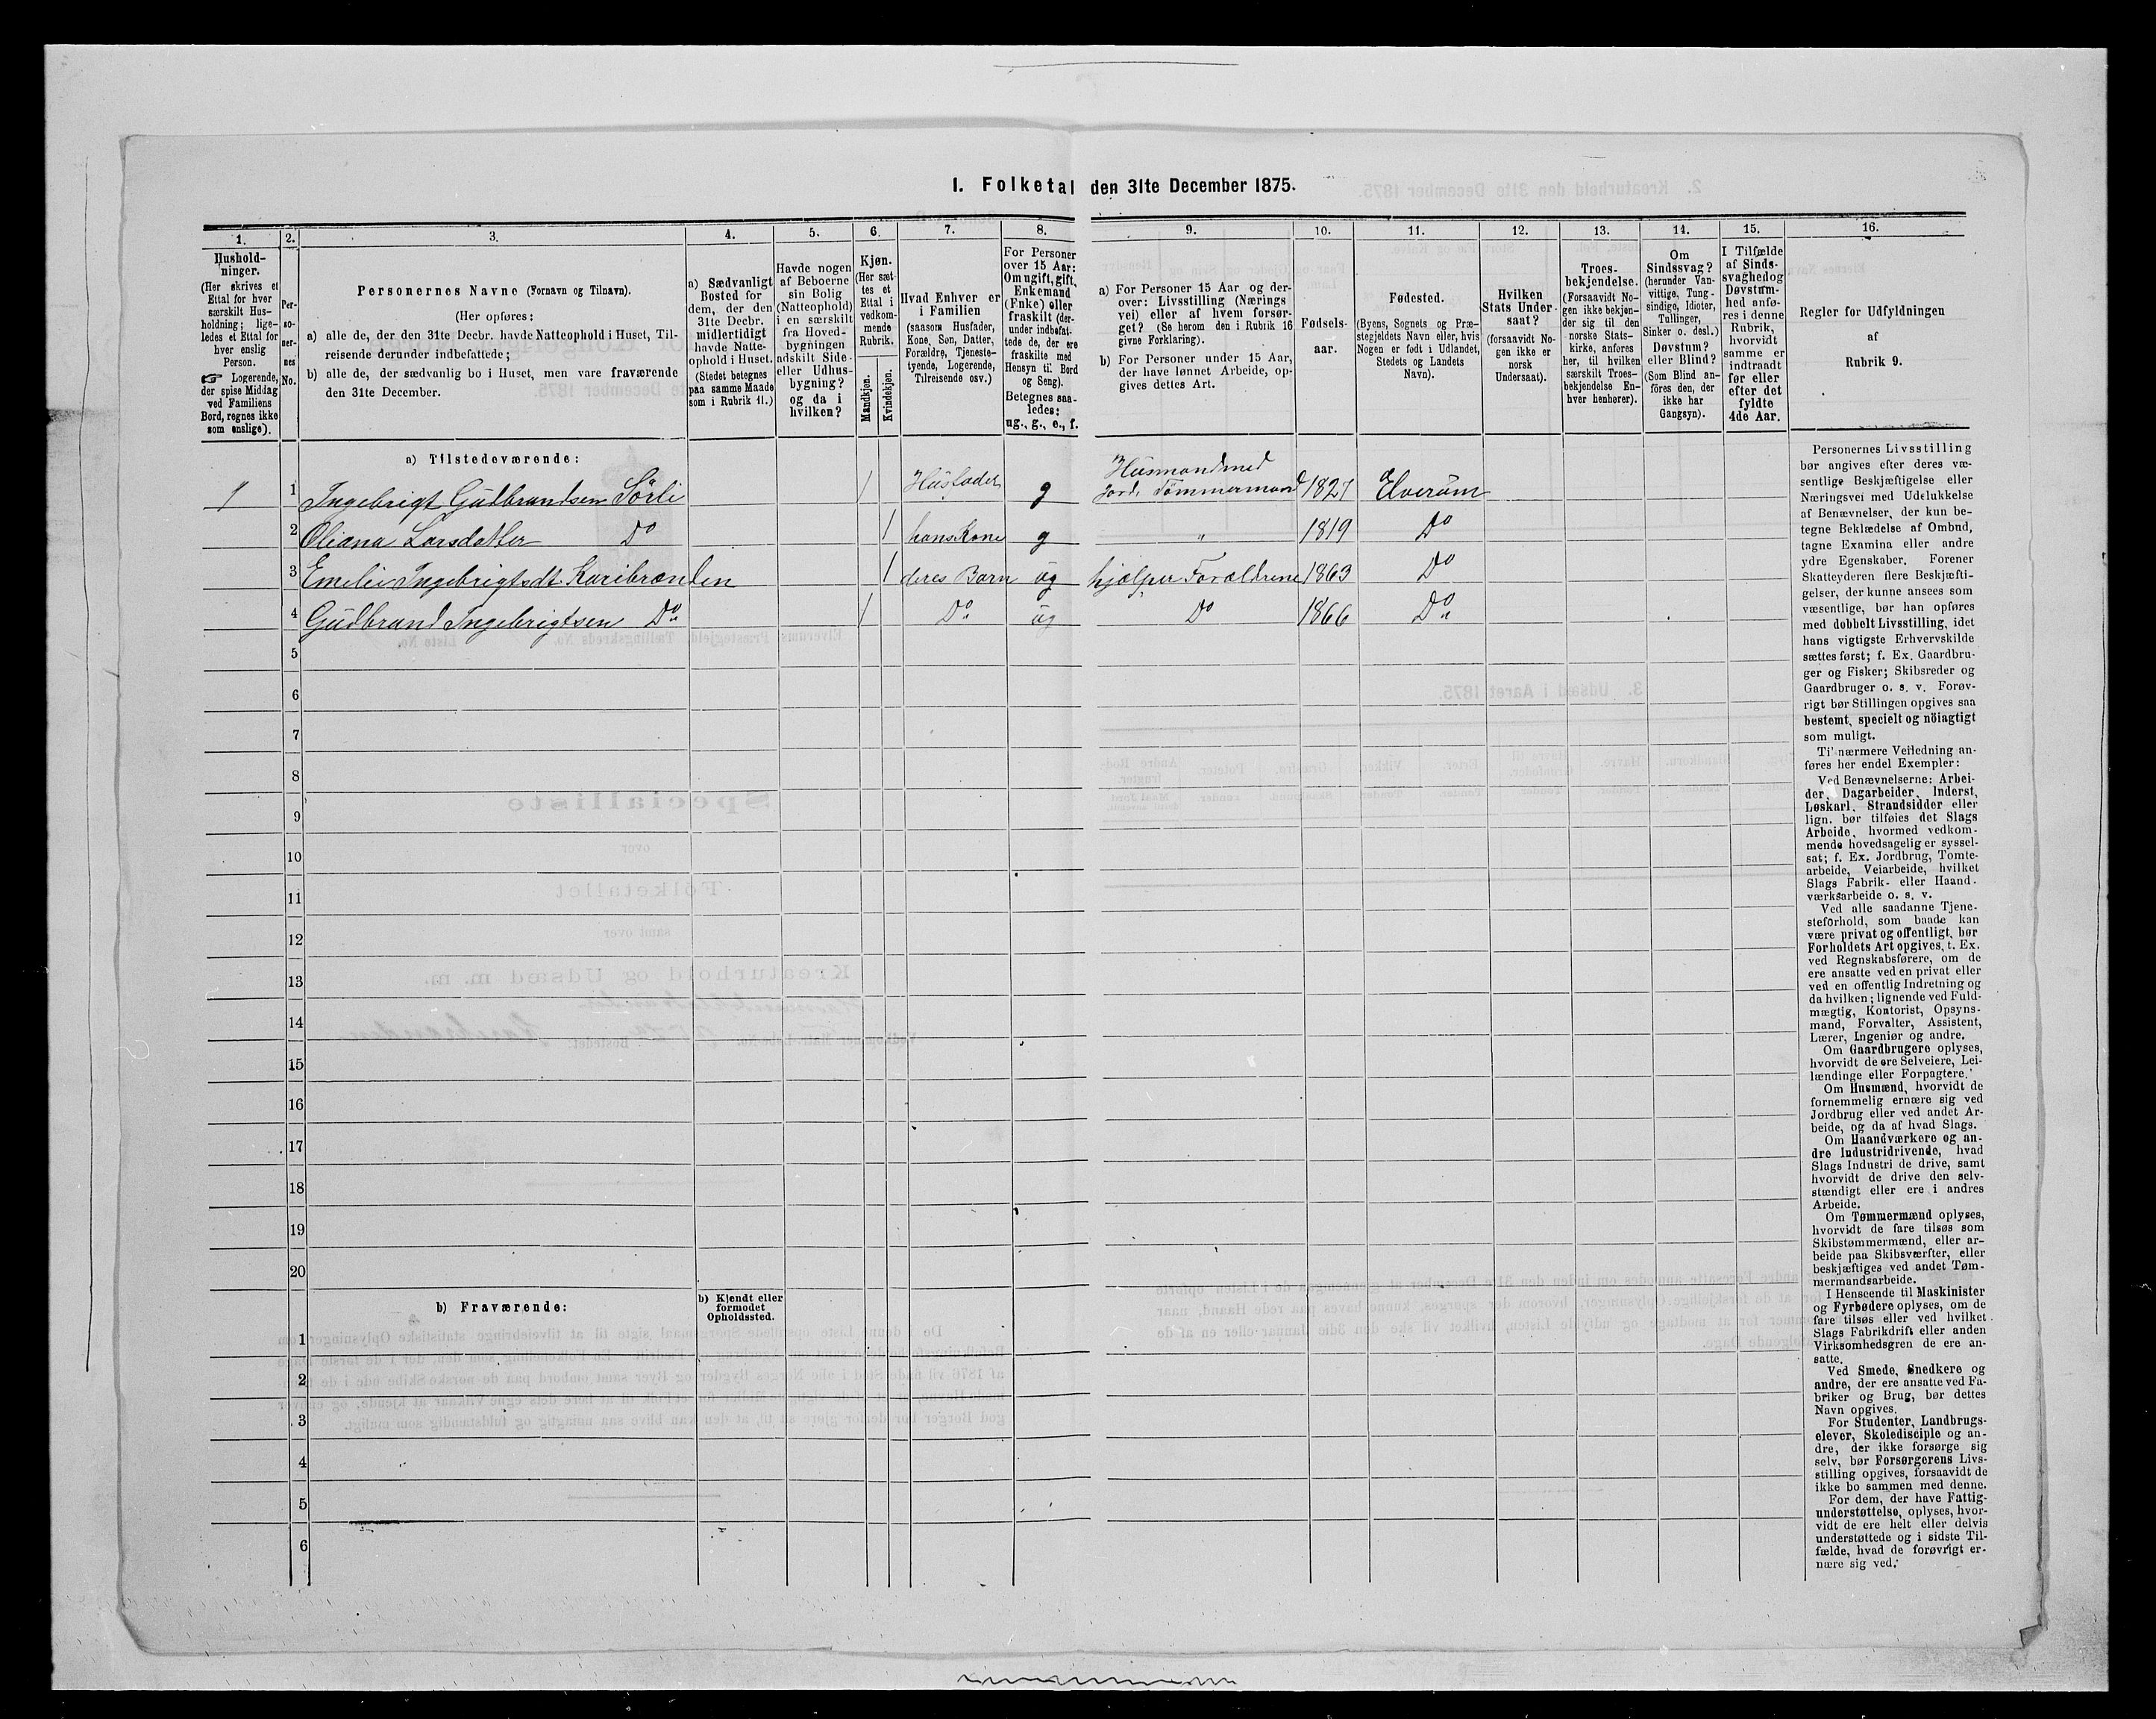 I. Folketal den 31te December 1875.
1.
Hushold-
ninger.
(Her skrives et
Ettal for hver
særskilt Hus-
holdning; lige-
ledes et Ettal for
hver enslig
Person.
☞ Logerende,
der spise Middag
ved Familiens
Bord, regnes ikke
som enslige).
2.
Per-
so-
ner-
nes
No.
3.
Personernes Navne (Fornavn og Tilnavn).
(Her opføres:
a) alle de, der den 31te Decbr. havde Natteophold i Huset, Til-
reisende derunder indbefattede;
b) alle de, der sædvanlig bo i Huset, men vare fraværende
den 31te December.
4.
a) Sædvanligt
Bosted for
dem, der den
31te Decbr.
midlertidigt
havde Natte-
ophold i Huset.
(Stedet betegnes
paa samme Maade
som i Rubrik 11.)
5.
Havde nogen
af Beboerne
sin Bolig
(Natteophold)
i en særskilt
fra Hoved-
bygningen
adskilt Side-
eller Udhus-
bygning?
og da i
hvilken?
6.
Kjøn.
(Her sæt
tes et
Ettal i
vedkom-
mende
Rubrik.
Mandkjøn.
Kvindekjøn.
7.
Hvad Enhver er
i Familien
(saasom Husfader,
Kone, Søn, Datter,
Forældre, Tjeneste-
tyende, Logerende,
Tilreisende osv.)
8.
For Personer
over 15 Aar:
Om ugift, gift,
Enkemand
(Enke) eller
fraskilt (der-
under indbefat-
tede de, der ere
fraskilte med
Hensyn til Bord
og Seng).
Betegnes saa-
ledes:
ug., g., e., f.
9.
a) For Personer 15 Aar og der-
over: Livsstilling (Nærings
vei) eller af hvem forsør-
get? (Se herom den i Rubrik 16
givne Forklaring).
b) For Personer under 15 Aar,
der have lønnet Arbeide, op-
gives dettes Art.
10.
Fødsels-
aar.
11.
Fødested.
(Byens, Sognets og Præ-
stegjeldets Navn eller, hvis
Nogen er født i Udlandet,
Stedets og Landets
Navn).
12.
Hvilken
Stats Under-
saat?
(forsaavidt No-
gen ikke er
norsk
Undersaat).
13.
Troes-
bekjendelse.
(Forsaavidt No-
gen ikke bekjen-
der sig til den
norske Stats-
kirke, anføres
her, til hvilken
særskilt Troes-
bekjendelse En-
hver henhører).
14.
Om
Sindssvag?
(herunder Van-
vittige, Tung-
sindige, Idioter,
Tullinger,
Sinker o. desl.)
Døvstum?
eller Blind?
(Som Blind an-
föres den, der
ikke har
Gangsyn).
15.
I Tilfælde
af Sinds-
svaghed og
Døvstum-
hed anfø-
res i denne
Rubrik,
hvorvidt
samme er
indtraadt
før eller
efter det
fyldte
4de Aar.
16.
Regler for Udfyldningen
af
Rubrik 9.
a) Tilstedeværende:
1 1 Ingebrigt Gudbrandsen Sörli 1 Husfader g Husmand med Jord, Tömmermand 1827 Elverum
2 Oliana Larsdatter Do 1 hans Kone g " 1819 Do
3 Emilie Ingebrigtsdt Karibrænden 1 deres Barn ug hjelper Foræltrene 1863 Do
4 Gudbrand Ingebrigtsen Do 1 Do ug Do 1866 Do
5
6
7
8
9
10
11
12
13
14
15
16
17
18
19
20
b) Fraværende:
b) Kjendt eller
formodet
Opholdssted.
1
2
3
4
5
6
Personernes Livsstilling
bør angives efter deres væ-
sentlige Beskjæftigelse eller
Næringsvei med Udelukkelse
af Benævnelser, der kun be-
tegne Beklædelse af Ombud,
tagne Examina eller andre
ydre Egenskaber. Forener
Skatteyderen flere Beskjæfti-
gelser, der kunne ansees som
væsentlige, bør han opføres
med dobbelt Livsstilling, idet
hans vigtigste Erhvervskilde
sættes først; f. Ex. Gaardbru-
ger og Fisker; Skibsreder og
Gaardbruger o. s. v. Forøv-
rigt bør Stillingen opgives saa
bestemt, specielt og nöiagtigt
som muligt.
Til nærmere Veiledning an-
føres her endel Exempler:
Ved Benævnelserne: Arbei-
der, Dagarbeider, Inderst,
Løskarl, Strandsidder eller
lign. bør tilføies det Slags
Arbeide, hvormed vedkom-
mende hovedsagelig er syssel-
sat; f. Ex. Jordbrug, Tomte-
arbeide, Veiarbeide, hvilket
Slags Fabrik- eller Haand-
værksarbeide o. s. v.
Ved alle saadanne Tjene-
steforhold, som baade kan
være privat og offentligt, bør
Forholdets Art opgives, t. Ex.
ved Regnskabsførere, om de
ere ansatte ved en privat eller
ved en offentlig Indretning og
da hvilken; lignende ved Fuld-
mægtig, Kontorist, Opsyns-
mand, Forvalter, Assistent,
Lærer, Ingeniør og andre.
Om Gaardbrugere oplyses,
hvorvidt de ere Selveiere, Lei-
lændinge eller Forpagtere.
Om Husmænd, hvorvidt de
fornemmelig ernære sig ved
Jordbrug eller ved andet Ar-
beide, og da af hvad Slags.
Om Haandværkere og an-
dre Industridrivende, hvad
Slags Industri de drive, samt
hvorvidt de drive den selv-
stændigt eller ere i andres
Arbeide.
Om Tømmermænd oplyses,
hvorvidt de fare tilsøs som
Skibstømmermænd, eller ar-
beide paa Skibsværfter, eller
beskjæftiges ved andet Tøm-
mermandsarbeide.
I Henseende til Maskinister
og Fyrbødere oplyses, om de
fare tilsøs eller ved hvilket
Slags Fabrikdrift eller anden
Virksomhedsgren de ere an-
satte.
Ved Smede, Snedkere og
andre, der ere ansatte ved Fa-
briker og Brug, bør dettes
Navn opgives.
For Studenter, Landbrugs-
elever, Skoledisciple og an-
dre, der ikke forsørge sig
selv, bør Forsørgerens Livs-
stilling opgives, forsaavidt de
ikke bo sammen med denne.
For dem, der have Fattig-
understøttelse, oplyses, hvor-
vidt de ere helt eller delvis
understøttede og i sidste Til-
fælde, hvad de forøvrigt er-
nære sig ved.